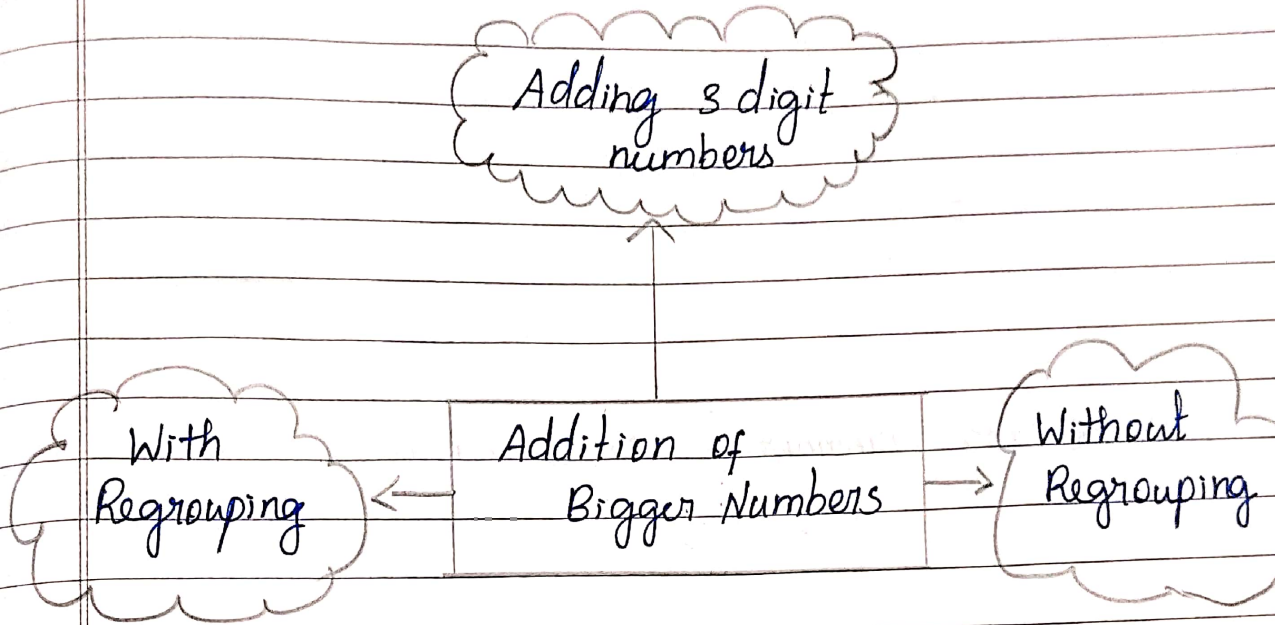 Adding 3 digit
numbers
With
Regrouping
Addition of
Bigger Numbers
Without
Regrouping